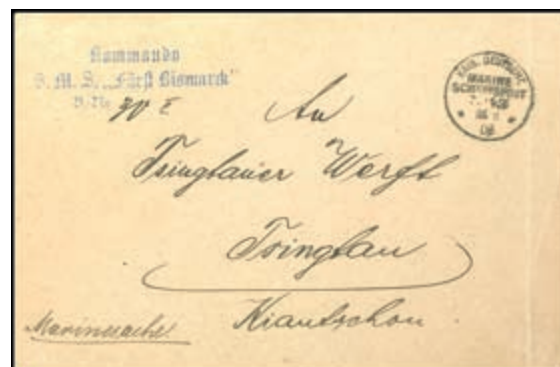 Kommando
S. M. S. „Fürst Bismarck“
B. No. 90 I
KAIS. DEUTSCHE
MARINE
SCHIFFSPOST
08
An
Tsingtauer Werft
Tsingtau
Kiautschou.
Marinesache.